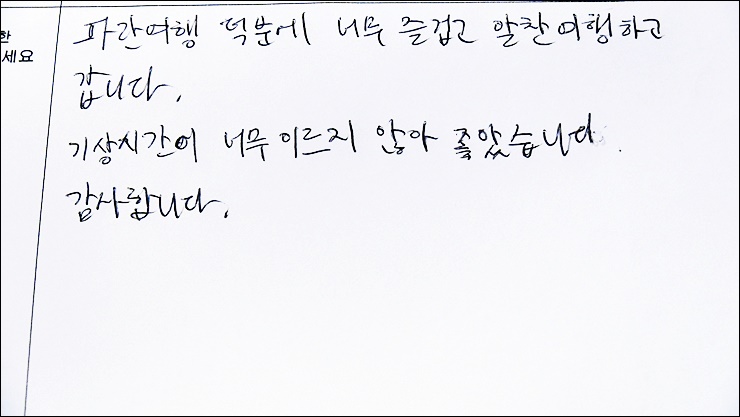 한
세요
파란여행 덕분에 너무 즐겁고 알찬여행하고
갑니다.
기상시간이 너무이르지 않아 좋았습니다.
감사합니다.